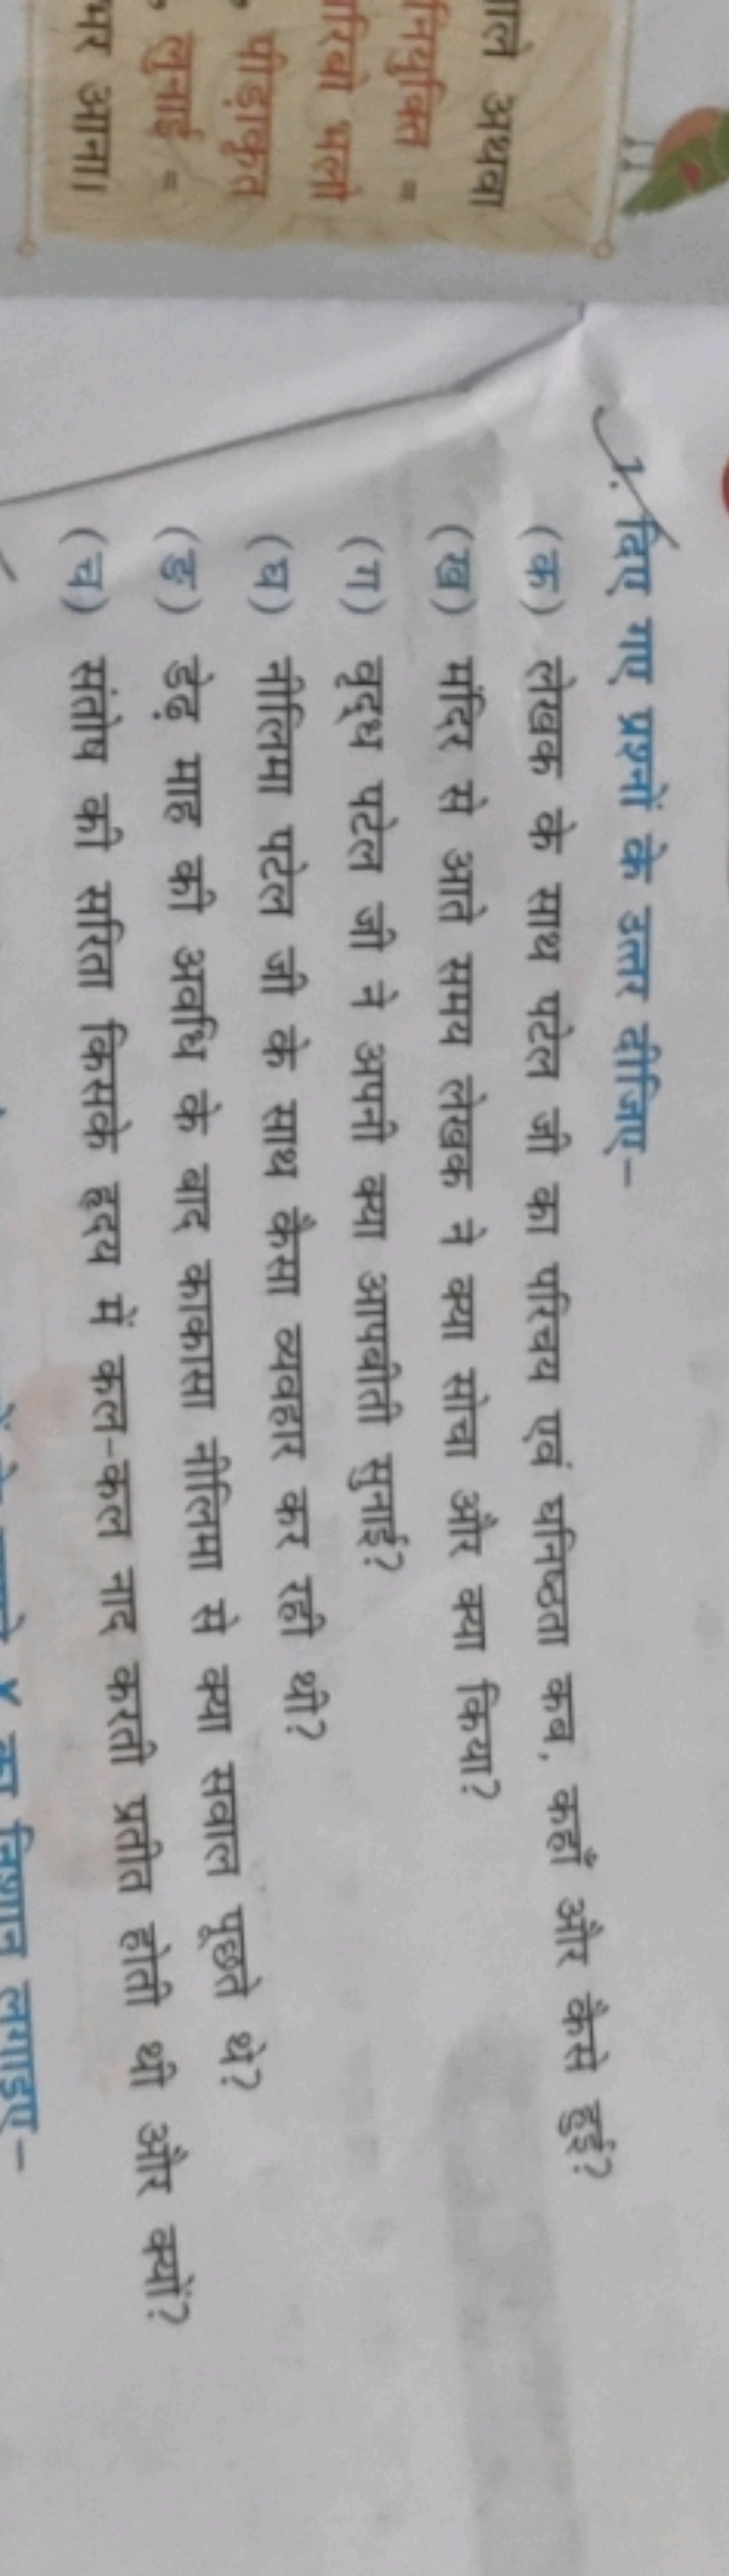 ाले अथवा
नियुक्ति =
रिबो भलो
पीड़ाकृत
लुनाई =
भर आना।
1. दिए गए प्रश्नों के उत्तर दीजिए–
(क) लेखक के साथ पटेल जी का परिचय एवं घनिष्ठता कब, कहाँ और कैसे हुई?
(ख) मंदिर से आते समय लेखक ने क्या सोचा और क्या किया?
(ग) वृद्ध पटेल जी ने अपनी क्या आपबीती सुनाई?
(घ) नीलिमा पटेल जी के साथ कैसा व्यवहार कर रही थी?
(ङ) डेढ़ माह की अवधि के बाद काकासा नीलिमा से क्या सवाल पूछते थे?
(च) संतोष की सरिता किसके हृदय में कल-कल नाद करती प्रतीत होती थी और क्यों?
का निशान लगाइए–